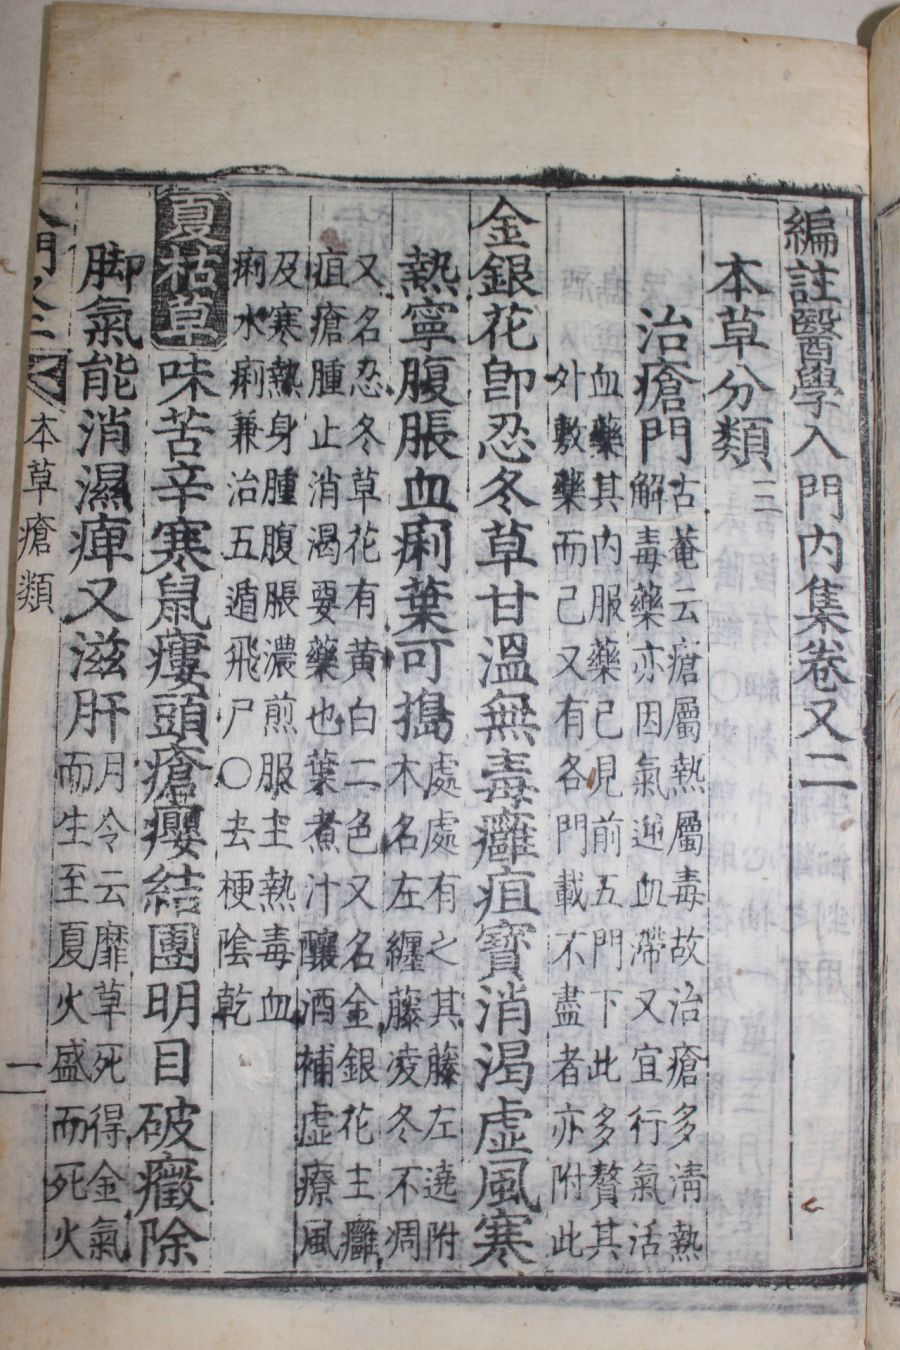 編註醫學入門內集卷又二
本草分類 三
治瘡門
古菴云瘡屬熱屬毒故治瘡多清熱
解毒藥亦因氣逆血滯又宜行氣活
血藥其內服藥已見前五門下此多贅其
外敷藥而已又有各門載不盡者亦附此
金銀花卽忍冬草甘溫無毒癰疽寶消渴虛風寒
熱寧腹脹血痢葉可搗
處處有之其藤左遶附
木名左纏藤凌冬不凋
又名忍冬草花有黃白二色又名金銀花主癰
疽瘡腫止消渴要藥也葉煮汁釀酒補虛療風
及寒熱身腫腹脹濃煎服主熱毒血
痢水痢兼治五遁飛尸〇去梗陰乾
夏枯草味苦辛寒鼠瘻頭瘡癭結團明目破癥除
脚氣能消濕痺又滋肝
月令云靡草死得金氣
而生至夏火盛而死火
本草瘡類
一